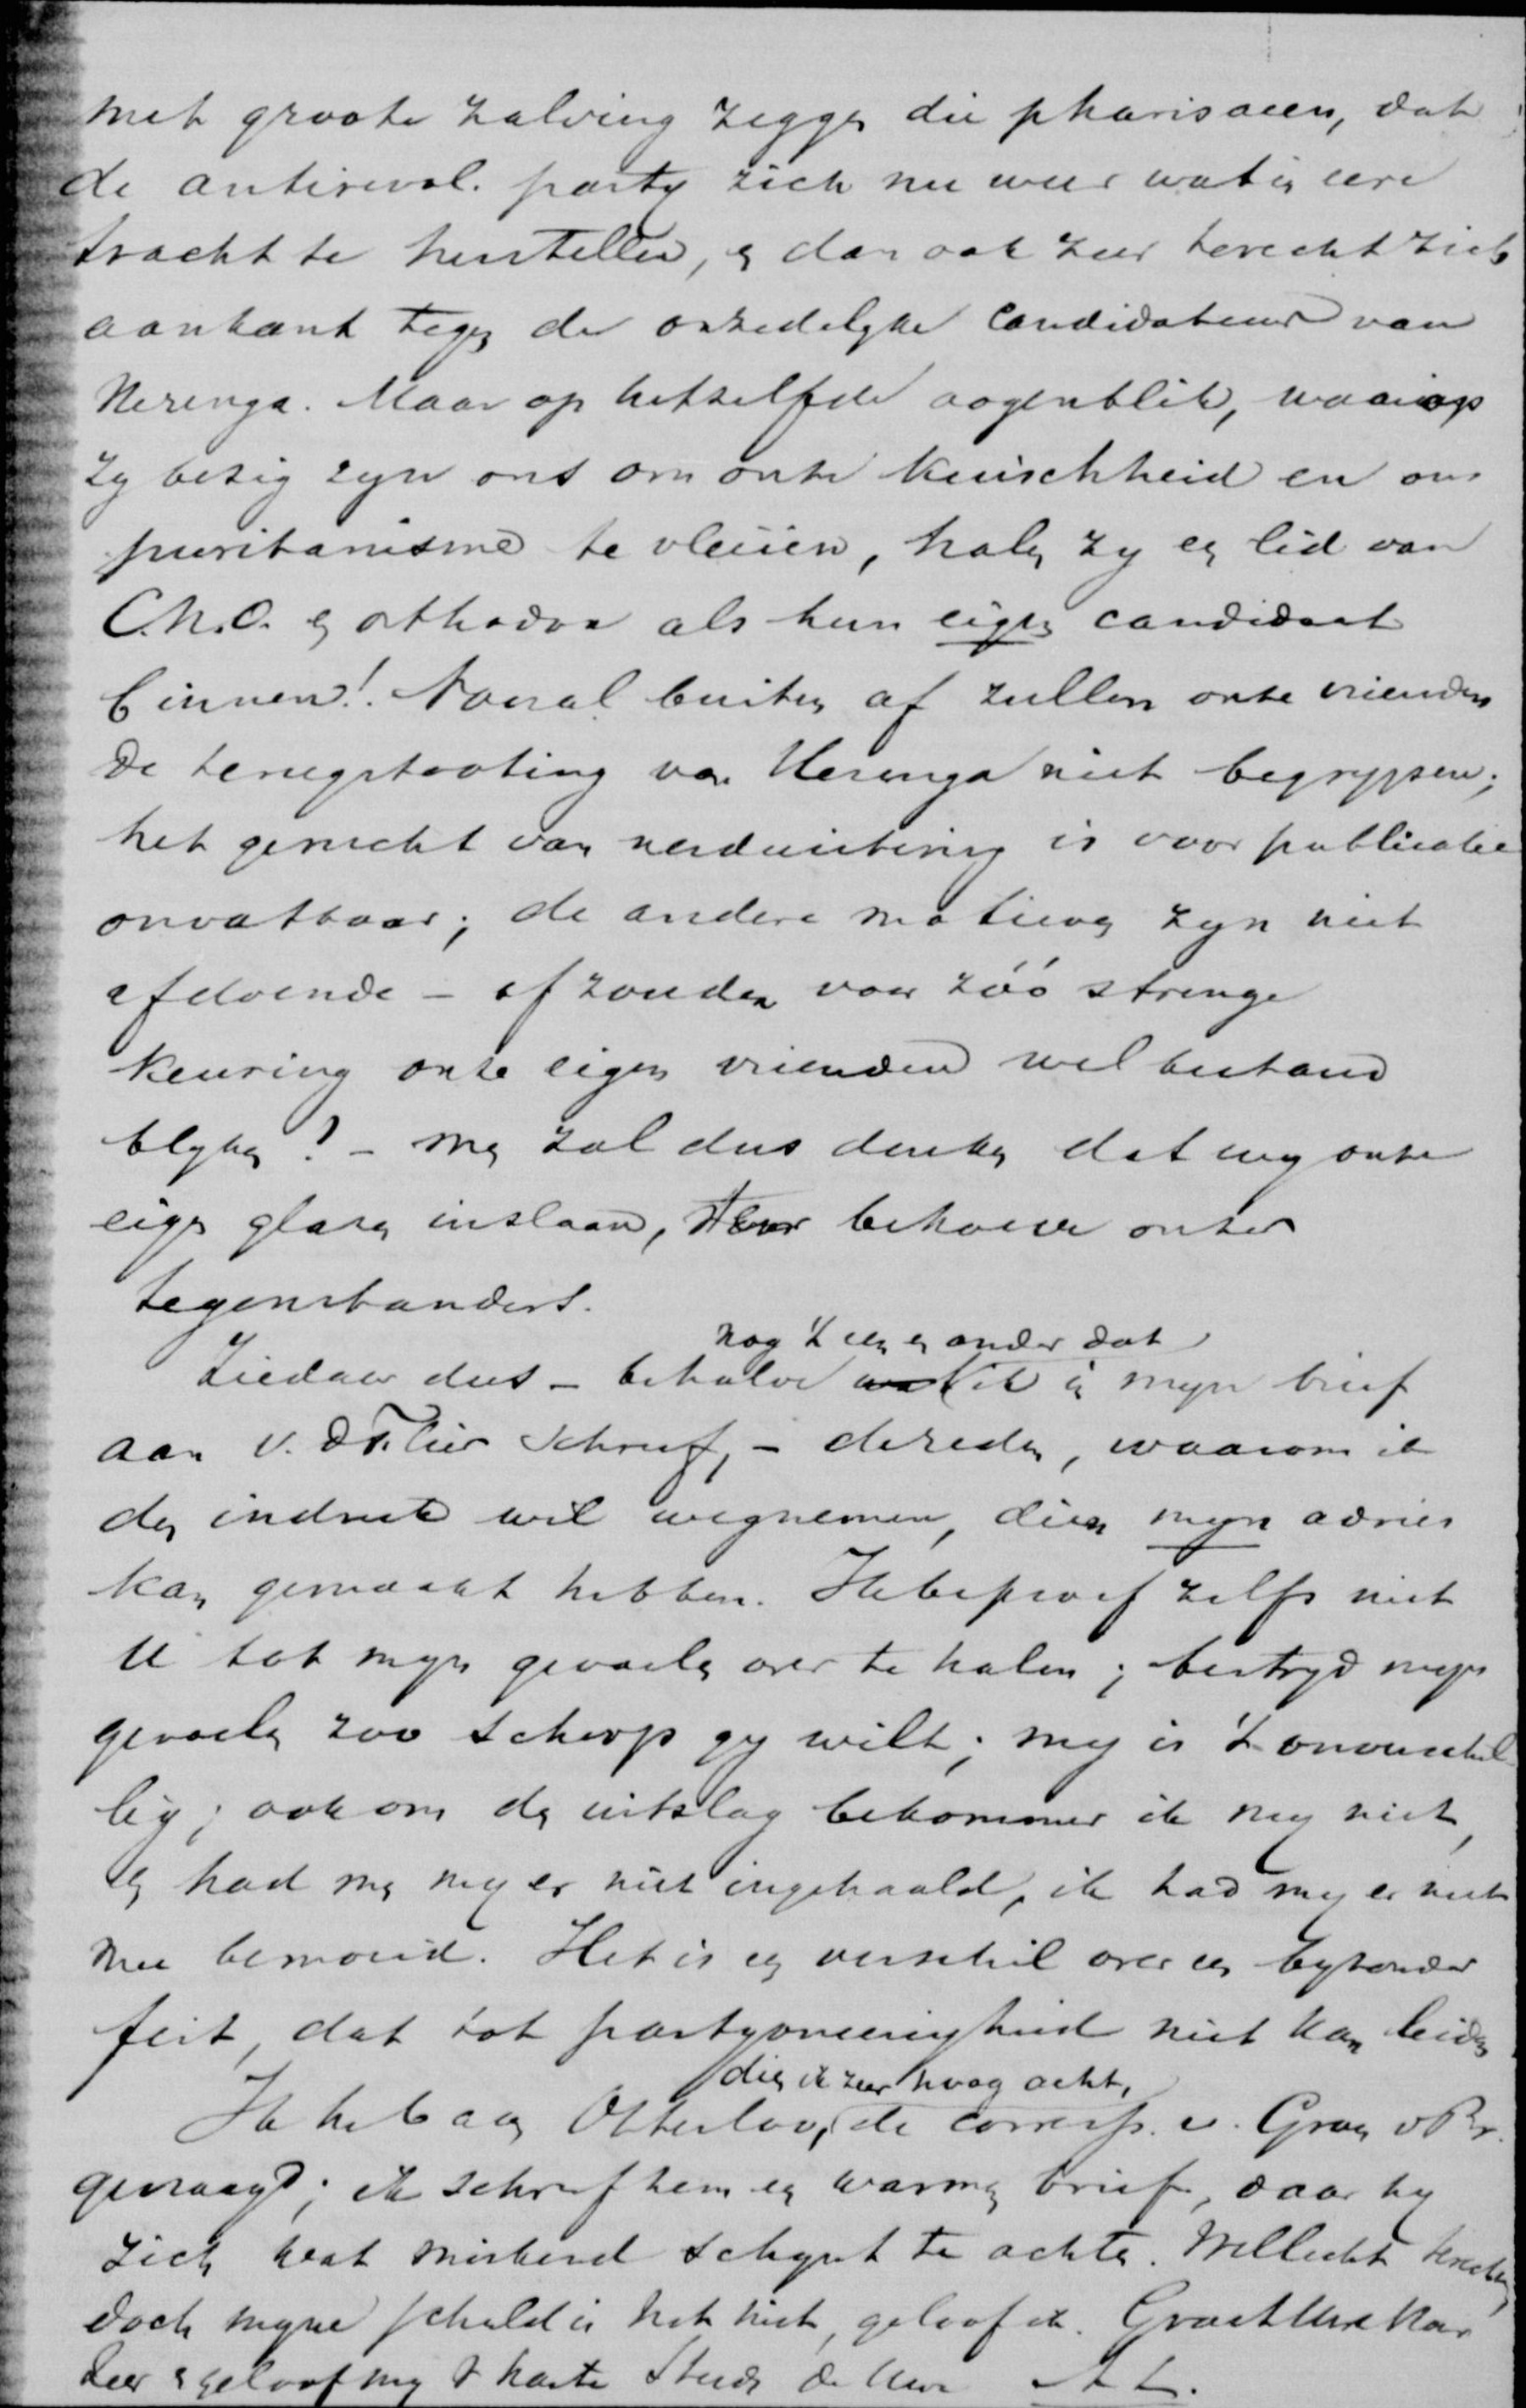 met groote zalving zeggen die pharisaeen, dat
de antirevol. party zich nu weer wat in eere
tracht te herstellen, en dan ook zeer terecht zich
aankant tegen de onzedelyke candidatuur van
Heringa. Maar op hetzelfde oogenblik, waarop
zy bezig zyn ons om onze kuischheid en ons
puritanisme te vleien, halen zy een lid van
C.h.O. en orthodox als hun eigen candidaat
binnen! Vooral buiten af zullen onze vrienden
de terugstooting van Heringa niet begrypen;
het gerucht van verduistering is voor publicatie
onvatbaar; de andere motieven zyn niet
afdoende - of zouden voor zóó strenge
keuring onze eigen vrienden wel bestand
blyken? - men zal dus denken dat wy onze
eigen glazen inslaan, ten behoeve onzer
tegenstanders.
nog 't een en ander dat
Ziedaar dus - behalve ik in myn brief
aan v. d. Flier schreef, - de reden, waarom ik
den indruk wil wegnemen, dien myn advies
kan gemaakt hebben. Ik beproef zelfs niet
U tot myn gevoelen over te halen; bestryd myn
gevoelen zoo scherp gy wilt; my is 't onverschil
lig; ook om den uitslag bekommer ik my niet,
en had men my er niet ingehaald, ik had my er niet
mee bemoeid. Het is een verschil over een byzonder
feit, dat tot partyoneenigheid niet kan leiden
dien ik zeer hoog acht,
Ik heb aan Otterloo, de corresp. v. Groen v Pr.
gevraagd; ik schreef hem een warmen brief, daar hy
zich wat miskend schynt te achten. Wellicht terecht,
doch myne schuld is het niet, geloof ik. Groet Uwe
zeer en geloof my t harte Steeds de Uwe A L.